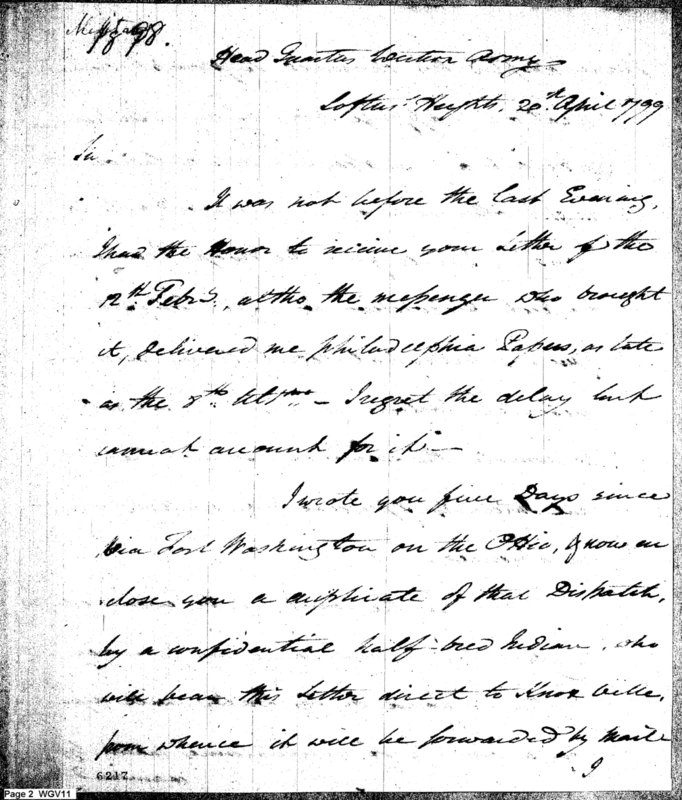 98.
Head Quarters Western Army
Loftus' Heights, 20th April 1799
Sir
It was not before the last Evening,
I had the Honor to receive your Letter of the
12th Febry., altho the messenger who brought
it, delivered me philadelphia Papers, as late
as the 8th Ultmo - I regret the delay but
cannot account for it -
I wrote you five Days since
Via Fort Washington on the Ohio, & now en
close you a duplicate of that Dispatch,
by a confidential half-bred Indian, who
will bear this Letter direct to Knox ville,
from whence it will be forwarded by Mail
I
6217
Page 2 WGV11